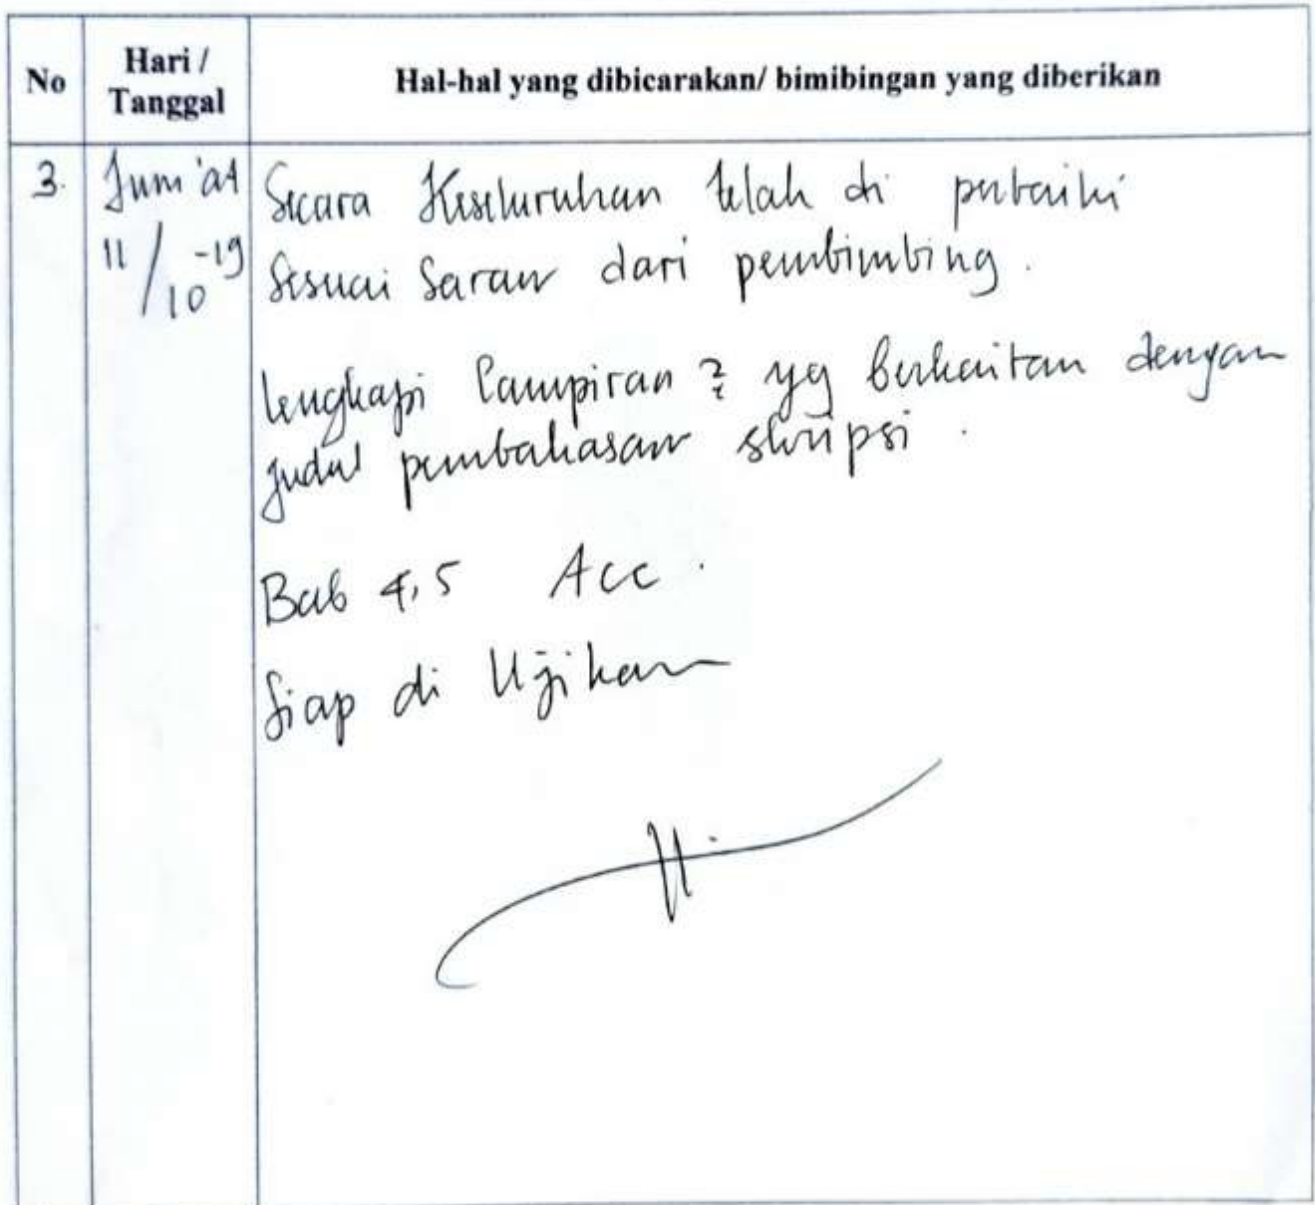 No
Hari /
Tanggal
Hal-hal yang dibicarakan/ bimibingan yang diberikan
3.
Jum'at
11/10 -19
Secara Keseluruhan telah di perbaiki
Sesuai Saran dari pembimbing.
lengkapi lampiran 2 yg berkaitan dengan
judul pembahasan skripsi.
Bab 4,5 Acc.
Siap di Ujikan